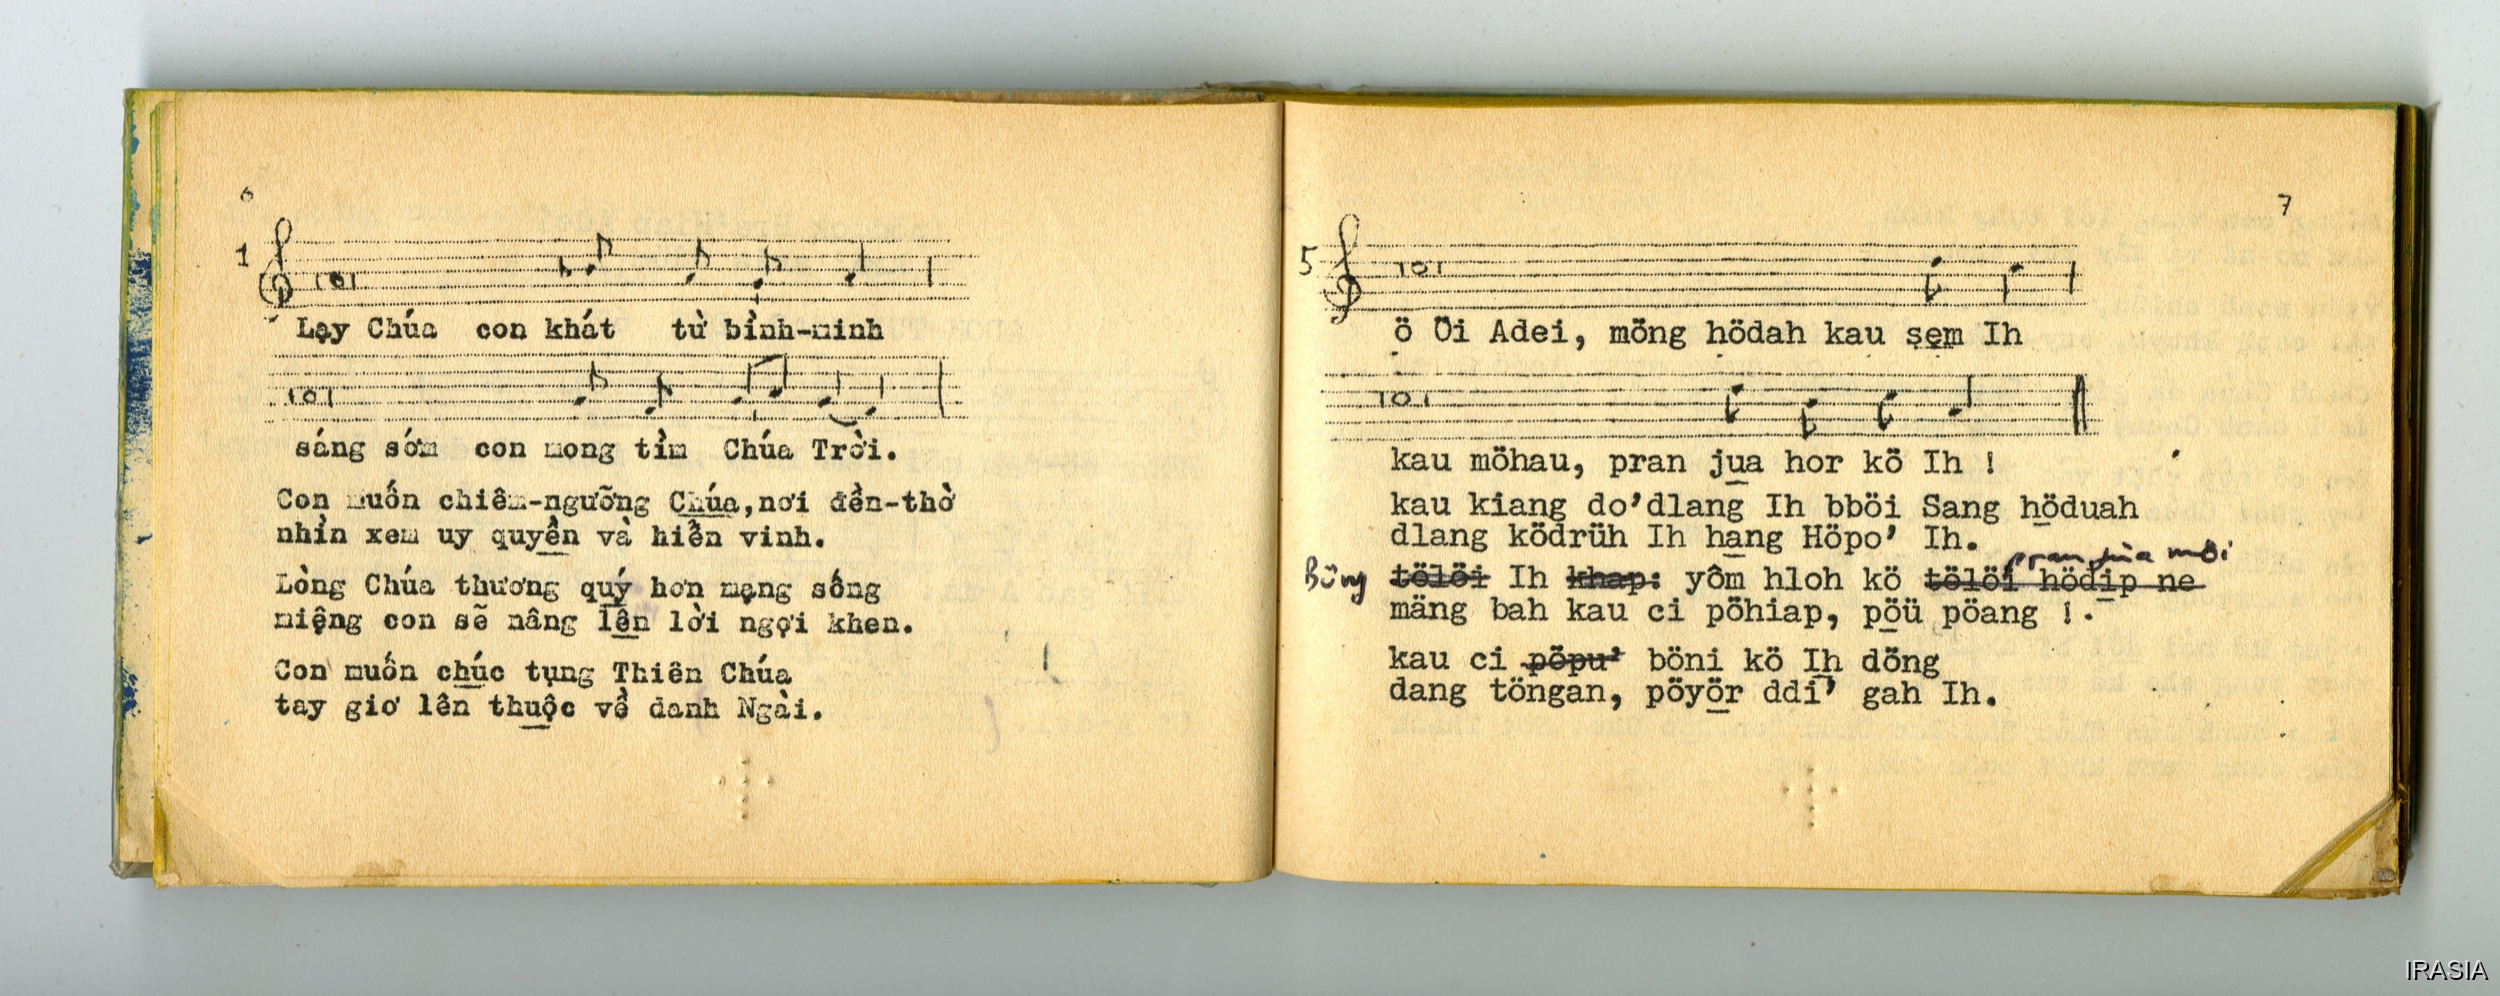 6
1
Lạy Chúa con khát từ bình-minh
sáng sớm con mong tìm Chúa Trời.
Con muốn chiêm-ngưỡng Chúa, nơi đền-thờ
nhìn xem uy quyền và hiển vinh.
Lòng Chúa thương quý hơn mạng sống
miệng con sẽ nâng lên lời ngợi khen.
Con muốn chúc tụng Thiên Chúa
tay giơ lên thuộc về danh Ngài.
7
5
ö Öi Adei, möng hödah kau sem Ih
kau möhau, pran jua hor kö Ih !
kau kiang do'dlang Ih bböi Sang höduah
dlang ködrüh Ih hang Höpo' Ih.
pran jua möi
Böng tölöi Ih khap: yôm hloh kö tölöi hödip ne
mäng bah kau ci pöhiap, pöü pöang !.
kau ci pöpu' böni kö Ih döng
dang töngan, pöyör ddi' gah Ih.
IRASIA